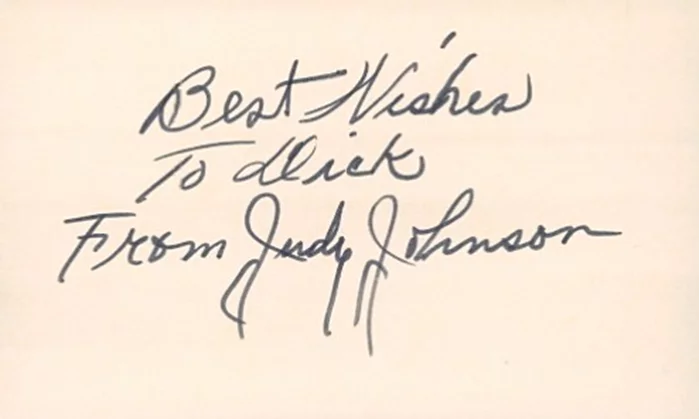 Best Wishes
To Dick
From Judy Johnson